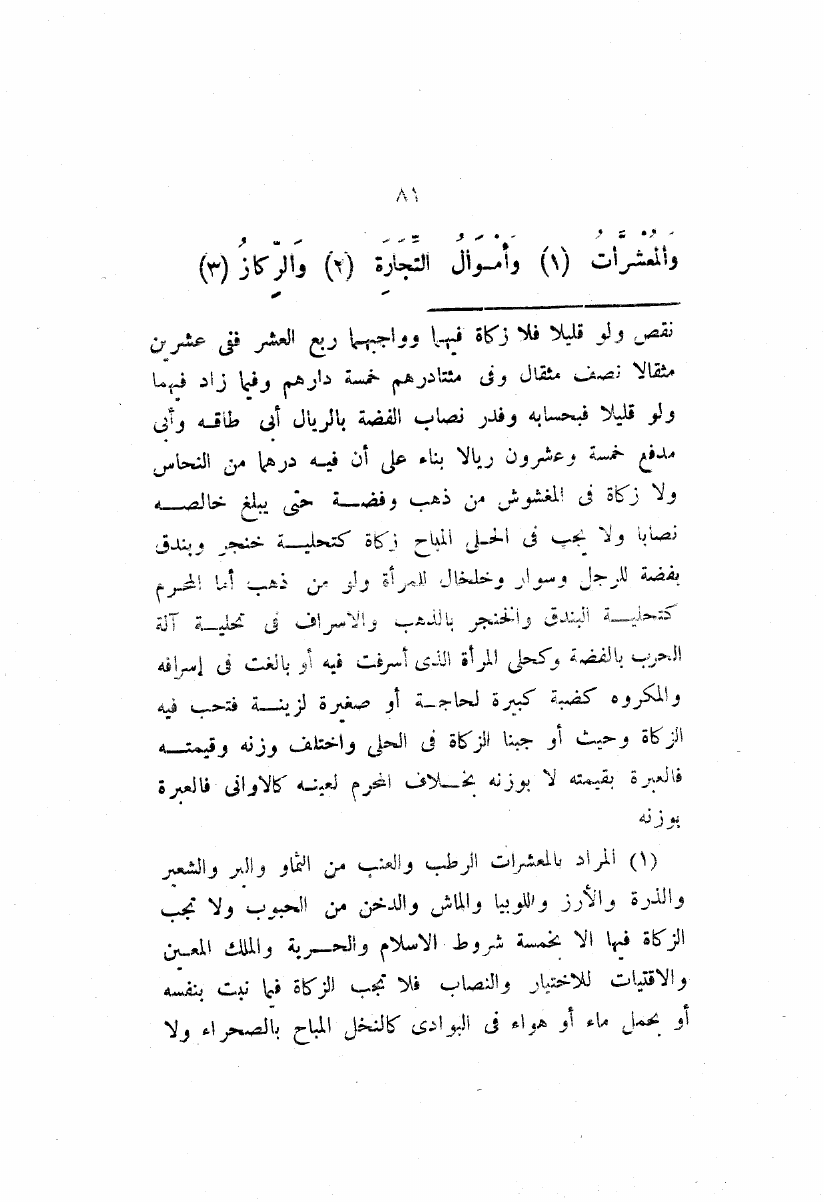 ٨١
وَالْمُعَشَّرَاتُ (١) وَأَمْوَالُ التِّجَارَةِ (٢) وَالرِّكَازُ (٣)
نقص ولو قليلا فلا زكاة فيها وواجبهما ربع العشر ففى عشرين
مثقالا نصف مثقال وفى مئتادرهم خمسة دارهم وفيما زاد فيهما
ولو قليلا فبحسابه وقدر نصاب الفضة بالريال أبى طاقه وأبى
مدفع خمسة وعشرون ريالا بناء على أن فيه درهما من النحاس
ولا زكاة فى المغشوش من ذهب وفضة حتى يبلغ خالصه
نصابا ولا يجب فى الحلى المباح زكاة كتحلية خنجر وبندق
بفضة للرجل وسوار وخلخال للمرأة ولو من ذهب أما المحرم
كتحلية البندق والخنجر بالذهب والاسراف فى تحلية آلة
الحرب بالفضة وكحلى المرأة الذى أسرفت فيه أو بالغت فى إسرافه
والمكروه كضبة كبيرة لحاجة أو صغيرة لزينة فتحب فيه
الزكاة وحيث أو جبنا الزكاة فى الحلى واختلف وزنه وقيمته
فالعبرة بقيمته لا بوزنه بخلاف المحرم لعينه كالاوانى فالعبرة
بوزنه
(١) المراد بالمعشرات الرطب والعنب من الثماو والبر والشعير
والذرة والأرز واللوبيا والماش والدخن من الحبوب ولا تجب
الزكاة فيها الا بخمسة شروط الاسلام والحرية والملك المعين
والاقتيات للاختيار والنصاب فلا تجب الزكاة فيما نبت بنفسه
أو بحمل ماء أو هواء فى البوادى كالنخل المباح بالصحراء ولا